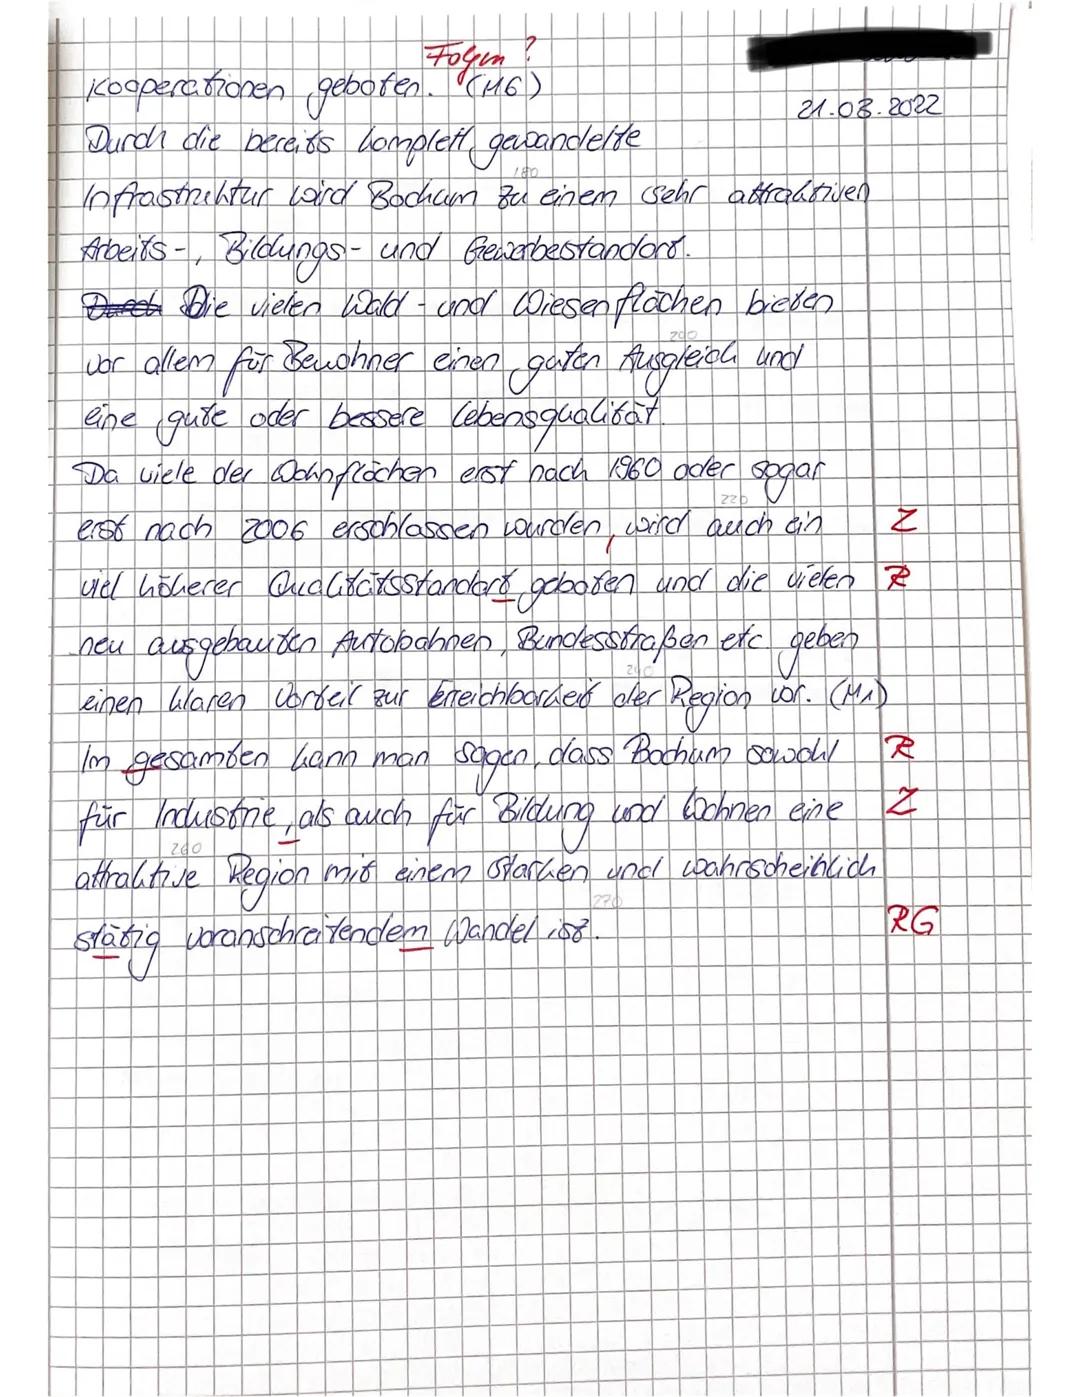 Folgen?
Kooperationen geboten. (M6)
21.03.2022
Durch die bereits komplett gewandelte
180
Infrastruktur wird Bochum zu einem sehr attraktiven
Arbeits-, Bildungs- und Gewerbestandort.
Durch Die vielen Wald- und Wiesenflächen bieten
200
vor allem für Bewohner einen guten Ausgleich und
eine gute oder bessere Lebensqualität.
Da viele der Wohnflächen erst nach 1960 oder sogar
220
erst nach 2006 erschlossen wurden, wird auch ein Z
viel höherer Qualitätsstandart geboten und die vielen R
neu ausgebauten Autobahnen, Bundesstraßen etc geben
240
einen klaren Vorteil zur Erreichbarkeit der Region vor. (M1)
Im gesamten kann man sagen, dass Bochum sowohl R
für Industrie, als auch für Bildung und Wohnen eine Z
260
attraktive Region mit einem starken und wahrscheinlich
270
stätig voranschreitendem Wandel ist. RG